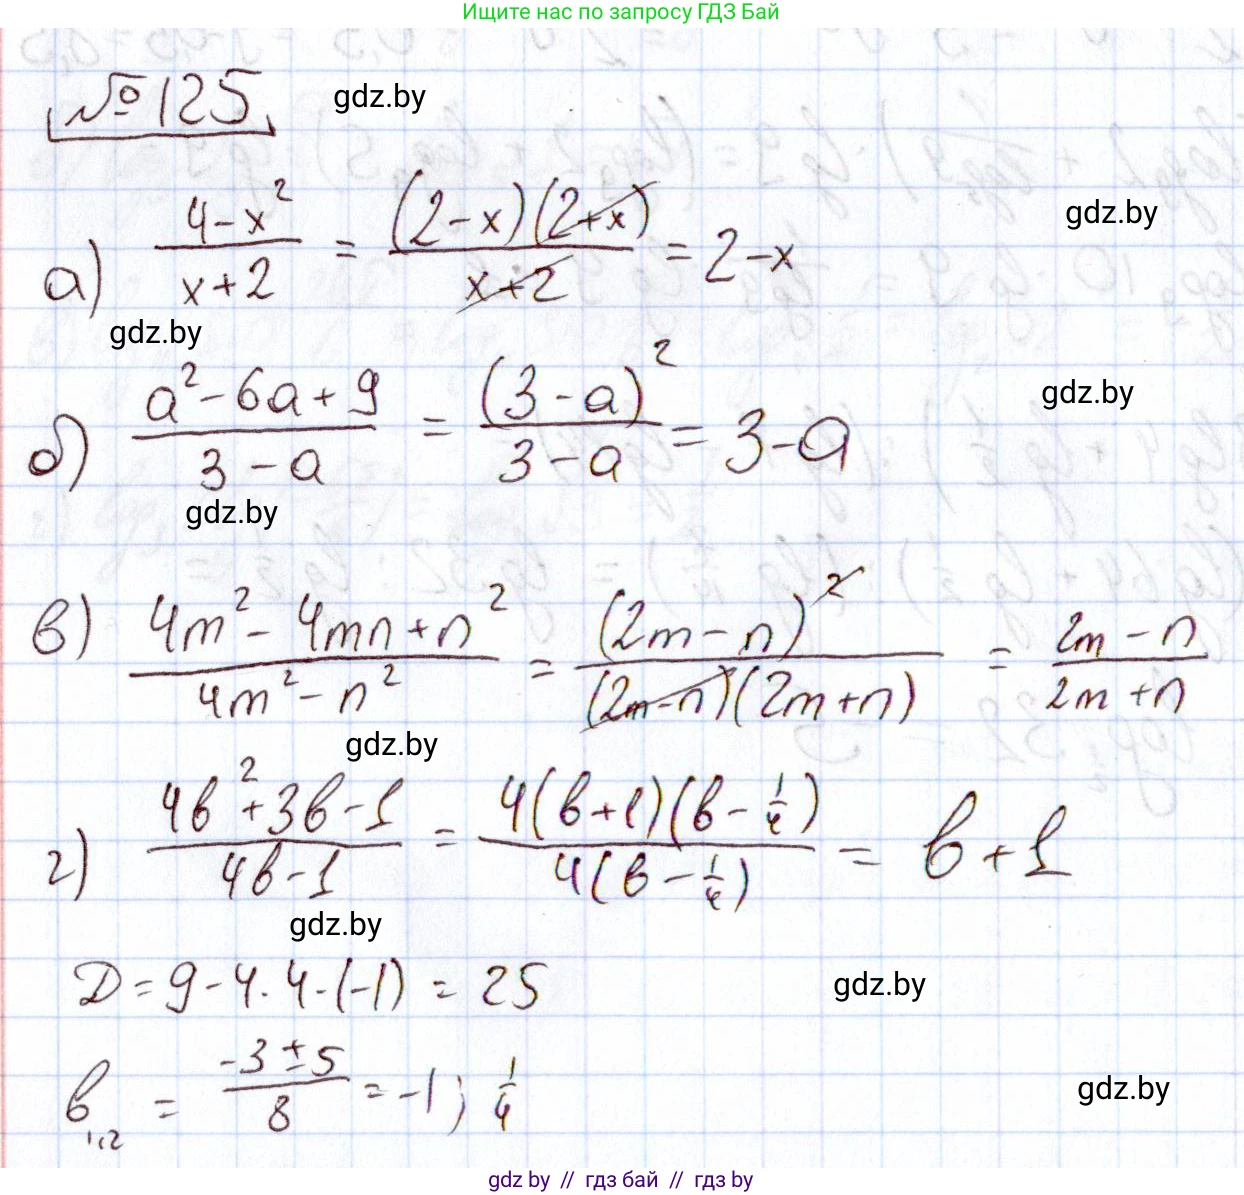 Ищите нас по запросу ГДЗ Бай
№125
gdz.by
а) (4-x²)/(x+2) = ((2-x)(2+x))/(x+2) = 2-x
gdz.by
gdz.by
б) (a²-6a+9)/(3-a) = (3-a)²/(3-a) = 3-a
gdz.by
gdz.by
в) (4m²-4mn+n²)/(4m²-n²) = (2m-n)²/((2m-n)(2m+n)) = (2m-n)/(2m+n)
gdz.by
г) (4в²+3в-1)/(4в-1) = (4(в+1)(в-1/4))/(4(в-1/4)) = в+1
gdz.by
D=9-4·4·(-1) = 25
gdz.by
в₁,₂ = (-3±5)/8 = -1; 1/4
gdz.by
gdz by // гдз бай // gdz by